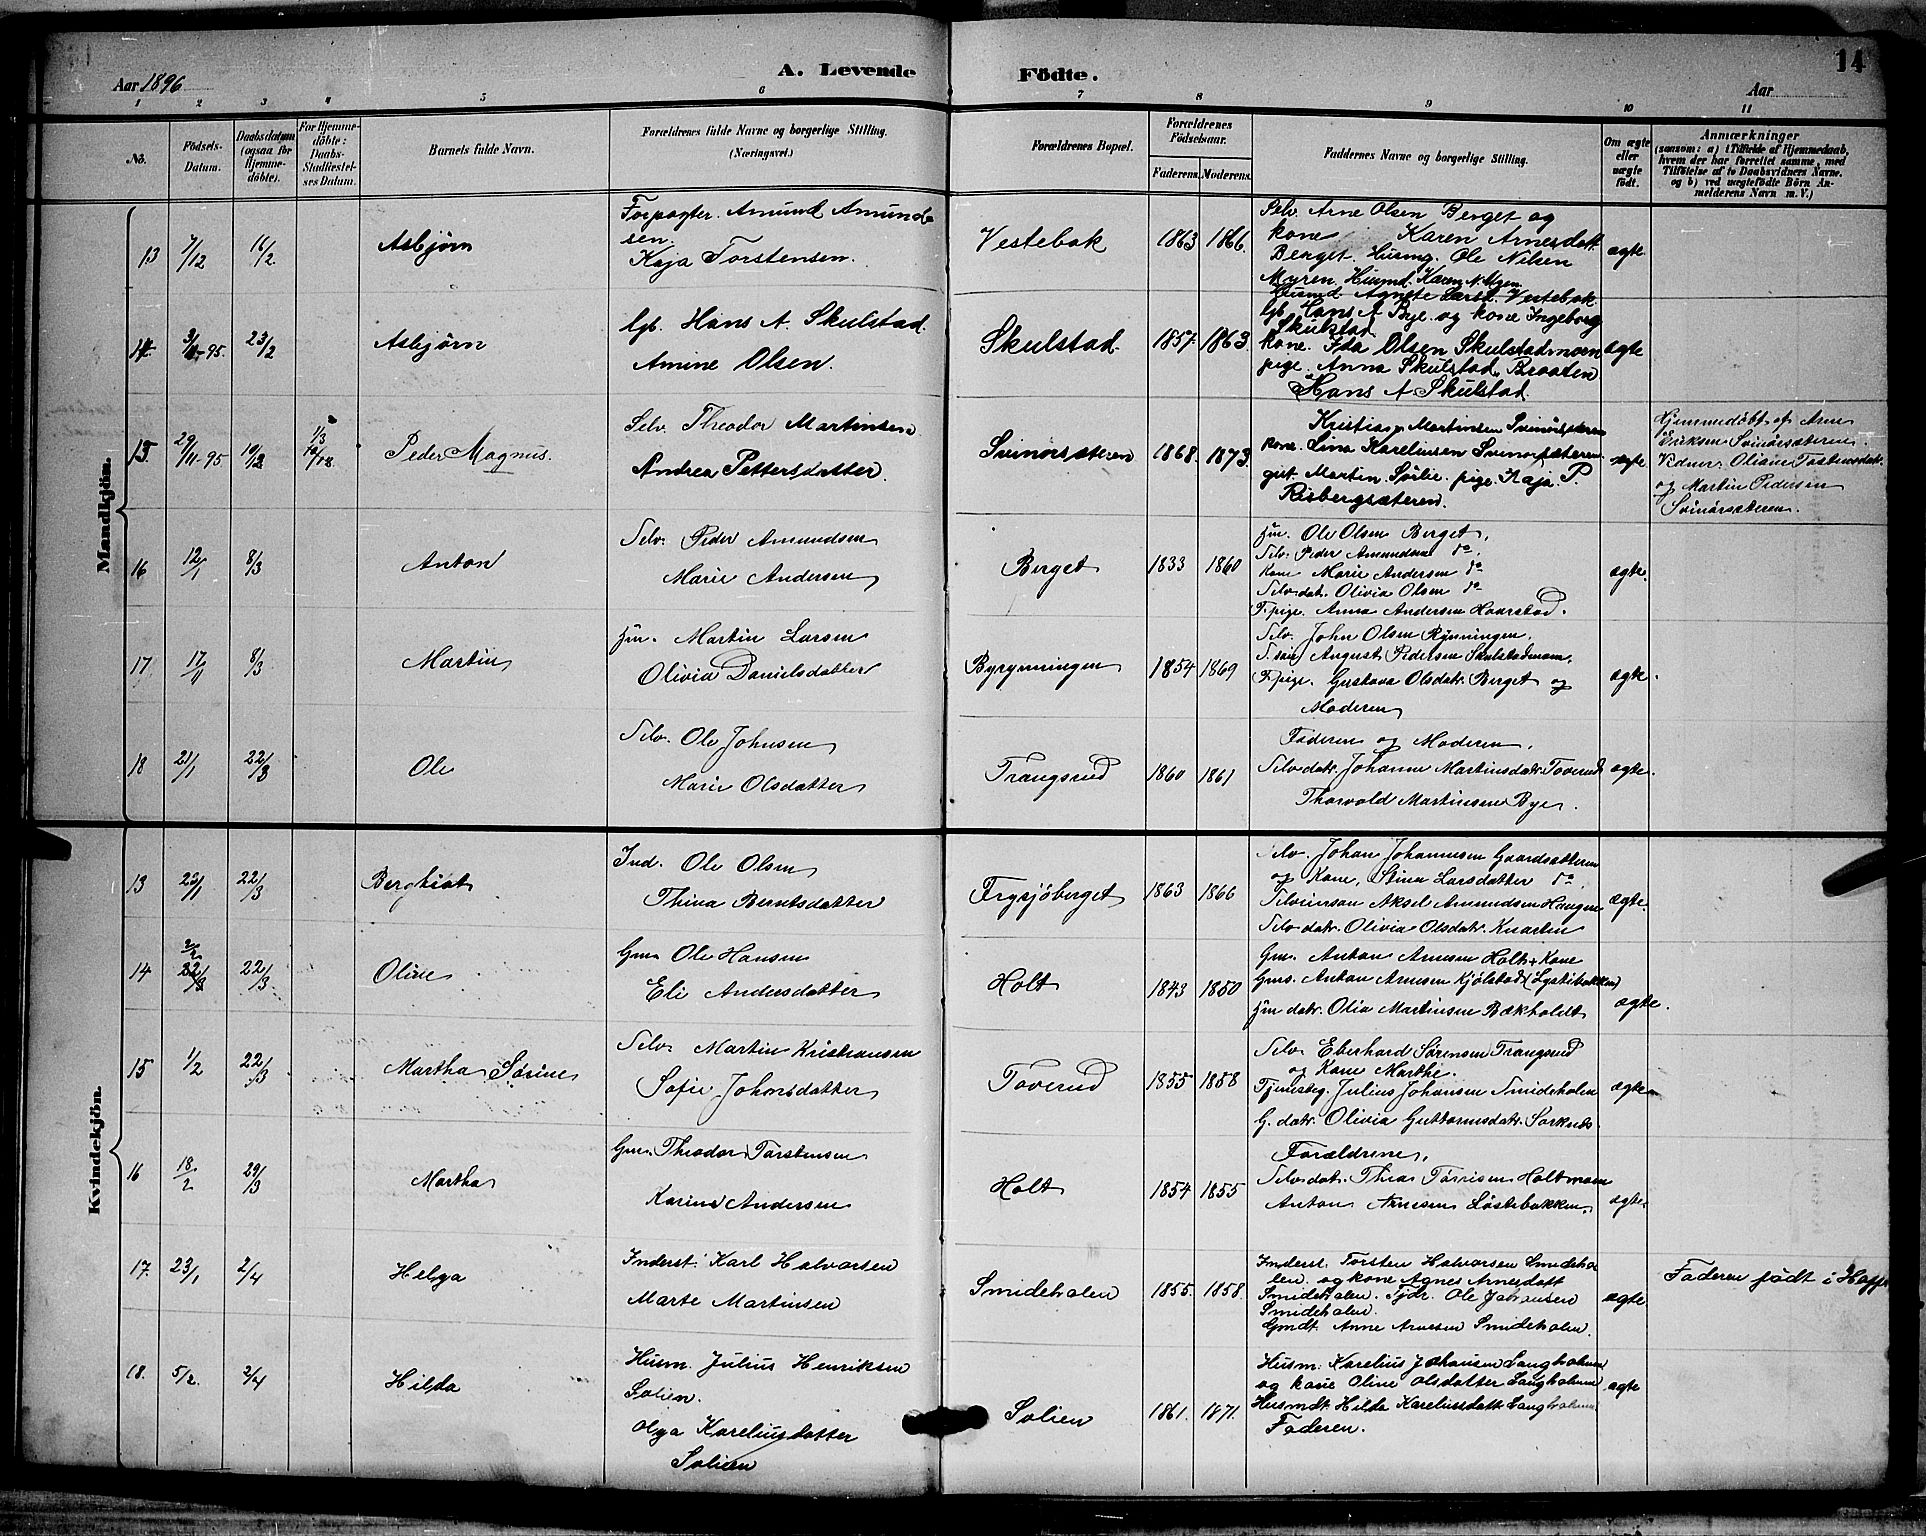 Aar 1896
A. Levende Födte.
Aar
14
1 2 3 4 5 6 7 8 9 10 11
No.
Födsels-
Datum.
Daabsdatum
(ogsaa for
Hjemme-
döbte).
For Hjemme-
döbte:
Daabs-
Stadfæstel-
ses Datum.
Barnets fulde Navn.
Forældrenes fulde Navne og borgerlige Stilling.
(Næringsvei.)
Forældrenes Bopæl.
Forældrenes
Födselsaar.
Faderens. Moderens.
Faddernes Navne og borgerlige Stilling.
Om ægte
eller
uægte
födt.
Anmærkninger
(saasom: a) i Tilfælde af Hjemmedaab,
hvem der har forrettet samme, med
Tilföielse af to Daabsvidners Navne.
og b) ved uægtefödte Börn An-
melderens Navn m. V.)
Mandkjön.
13 7/12 16/2. Asbjørn
Forpagter. Amund Amund-
sen.
Kaja Torstensen.
Vestebak 1863 1866.
Selv. Arne Olsen Berget og
kone Karen Arnesdatt.
Berget. Husmg. Ole Nilsen
Myren. Husmd. Karen N. Myren
Husmd Agnete Larsd. Vestebak.
ægte
14. 95. 23/2 Asbjørn
Gb. Hans A. Skulstad.
Amine Olsen.
Skulstad. 1857. 1863.
Gb. Hans A Bye. og kone Ingeborg
Skulstad
kone. Ida Olsen Skulstadmoen
pige. Anna Skulstad, Braaten
Hans A Skulstad.
ægte
15. 29/11-95 10/12 1/3 Peder Magnus.
Selv. Theodor Martinsen
Andrea Pettersdatter.
Svinørsæteren 1868. 1873.
Kristian Martinsen Svinørsæteren
kone. Lina Kareliussen Svinorsæteren.
gut. Martin Sørlie. pige. Kaja. P.
Risbergsæteren.
ægte
Hjemmedøbt af Arne
Eriksen Svinørsæteren.
Vidner: Oliane Torstensdatt.
og Martin Pedersen
Svinörsæteren.
16 12/1 8/3 Anton
Selv. Peder Amundsen
Marie Andersen
Berget 1833 1860
Hm. Ole Olsen Berget,
Selv. Peder Amundsen do.
Kone Marie Andersen do
Selvsdatr. Olivia Olsen do
T.pige. Anna Andersen Haarstad.
ægte.
17 8/3 Martin
Hm. Martin Larsen
Olivia Danielsdatter
Byrynningen 1854 1869
Selv. John Olsen Rynningen,
August Pedersen Skulstadmoen,
T.pige. Gustava Olsdatr. Berget og
Moderen
ægte.
18 21/1 22/3 Ole
Selv. Ole Johnsen
Marie Olsdatter
Trangsrud 1860 1861
Faderen og Moderen,
Selvsdatr. Johanne Martinsdatr. Toverud
Thorvald Martinsen Bye.
ægte.
Kvindekjön.
13 22/3 Berghiot
Ind. Ole Olsen
Thina Berntsdatter
Frysjöberget 1863 1866
Selv. Johan Johannesen Gaardsætteren
og Kone, Stina Larsdatter do,
Aksel Amundsen Haugen
Selvsdatr. Olivia Olsdatr. Knartin
ægte.
14 22/3 Oline
Gm. Ole Hansen
Eli Andersdatter
Holt 1843 1850
Gm. Anton Arnesen Holt + Kone
Gms. Anton Arnesen Kjölstad (Lystibakken)
Hm datr. Olia Martinsen Bækholdt
ægte.
15 1/2 22/3 Martha Sörine
Selv. Martin Kristiansen
Sofie Johnsdatter
Toverud 1855 1858
Selv Eberhard Sörensen Trangsrud
og Kone Marthe.
Tjenestg. Julius Johansen Smideholen
G. datr. Olivia Guttormsdatr. Sorknes.
ægte
16 18/2 29/3 Martha
Gm. Theodor Torstensen
Karine Andersen
Holt 1854 1855
Forældrene,
Selvsdatr. Thea Törrisen Holtmoen
Anton Arnesen Löstebakken.
ægte.
17. 23/1 2/4 Helga
Inderst. Karl Halvorsen
Marte Martinsen
Smideholen 1855. 1858.
Inderst. Torsten Halvorsen Smideho-
len. og kone Agnes Arnesdatt
Smideholen. Tjdr. Ole Johansen
Smideholen.
Gmdt. Anne Arnesen Smideholen.
ægte
Faderen født i Hoff
18. 5/2. 2/4 Hilda
Husm. Julius Henriksen
Solien.
Olga Kareliusdatter
Solien
Solien 1861. 1871.
Husm: Karelius Johansen Langholmen
og kone Oline Olsdatter Langholmen
Husmdt. Hilda Kareliusdatt Langholmen
Faderen.
ægte